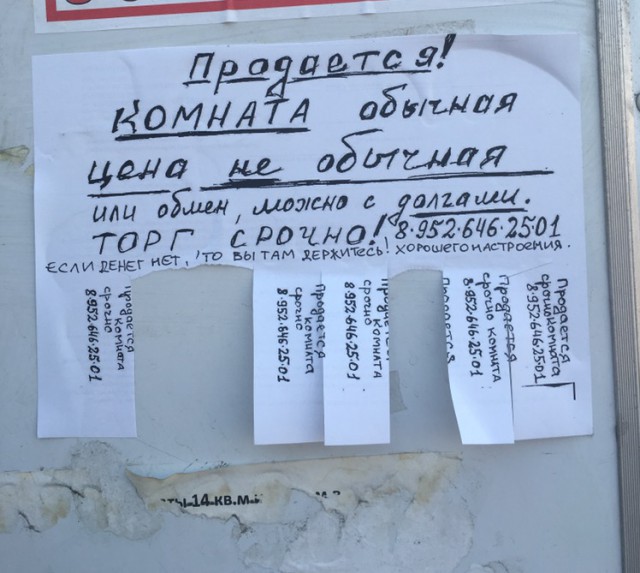 Продается!
КОМНАТА обычная
цена не обычная
или обмен, можно с долгами.
ТОРГ СРОЧНО! 8·952·646·25·01
ЕСЛИ ДЕНЕГ НЕТ, ТО ВЫ ТАМ ДЕРЖИТЕСЬ! ХОРОШЕГО НАСТРОЕНИЯ.
Продается
комната
срочно
8·952·646·25·01
Продается
комната
срочно
8·952·646·25·01
Продается
комната
срочно
8·952·646·25·01
Продается
Продается
срочно комната
8·952·646·25·01
Продается
срочно комната
8·952·646·25·01
14 КВ.М